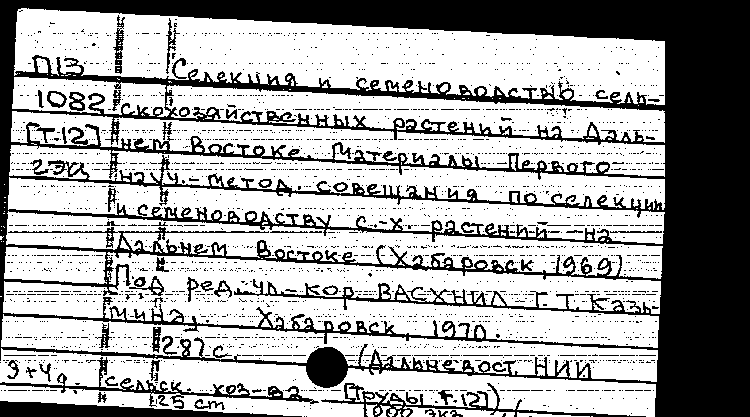 П13 Селекция и семеноводство сель-
1082 скохозяйственных растений на Даль-
[Т.12] нем Востоке. Материалы Первого
2экз науч.-метод. совещания по селекции
и семеноводству с.-х. растений на
Дальнем Востоке (Хабаровск, 1969)
Под ред. чл.-кор. ВАСХНИЛ Г.Т. Казь-
мина. Хабаровск, 1970.
287 с. (Дальневост. НИИ
сельск. хоз-ва. [Труды т.12])
25 cm 1000 экз